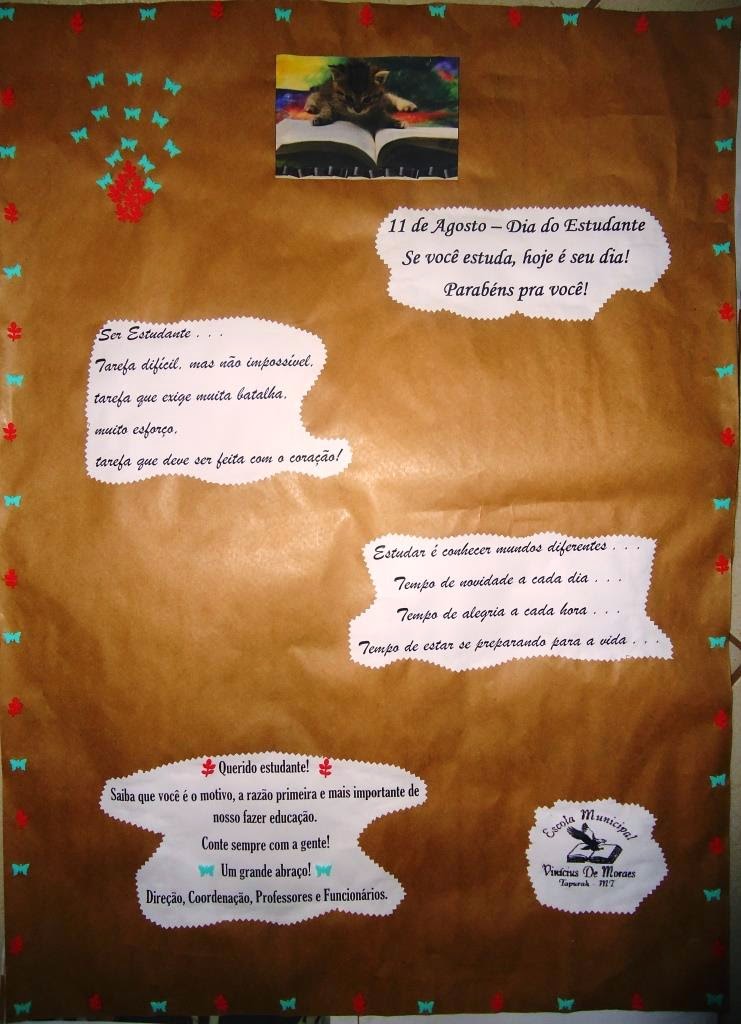 11 de Agosto – Dia do Estudante
Se você estuda, hoje é seu dia!
Parabéns pra você!
Ser Estudante . . .
Tarefa difícil, mas não impossível,
tarefa que exige muita batalha,
muito esforço,
tarefa que deve ser feita com o coração!
Estudar é conhecer mundos diferentes . . .
Tempo de novidade a cada dia . . .
Tempo de alegria a cada hora . . .
Tempo de estar se preparando para a vida . . .
Querido estudante!
Saiba que você é o motivo, a razão primeira e mais importante de
nosso fazer educação.
Conte sempre com a gente!
Um grande abraço!
Direção, Coordenação, Professores e Funcionários.
Escola Municipal
Vinícius De Moraes
Tapurah - MT